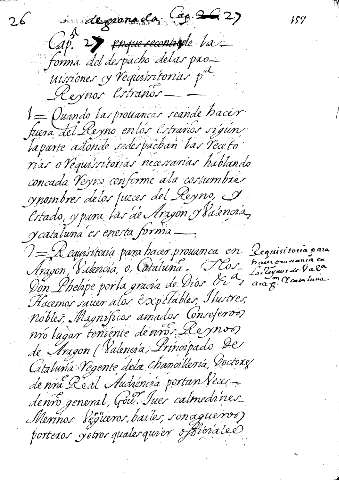 26 de granada Cap. 26 27 157
Cap. 27 en que se contiene la
forma del despacho de las pro
uissiones y Requisitorias pa
Reynos Estraños
1 = Quando las prouanças se an de hacer
fuera del Reyno en los Estraños sigun
la parte adonde se despachan las receto
rias o Requisitorias necesarias hablando
con cada Reyno conforme a la costumbre
y nombres de los Juezes del Reyno, y
Estado, y para las de Aragon, y Valencia,
y cataluña es en esta forma
1 = Requisitoria para hacer prouança en
Aragon, Valencia, o Cataluña. = Nos
Don Phelipe por la gracia de Dios &
Hacemos sauer a los Expetables, Ilustres,
nobles, Magnificos amados Consejeros
nro lugar teniente de nros. Reynos
de Aragon (Valencia, Principado de
Cataluña Regente de la Chancilleria, Doctores
de nra. Real Audiencia portan Veces
de nro general, Gour.
Merinos Vegueros, bailes,
porteros y otros qualesquier officiales
Requisitoria para
hacer prouança en
los Reynos de Vala
Arag. Cataluna